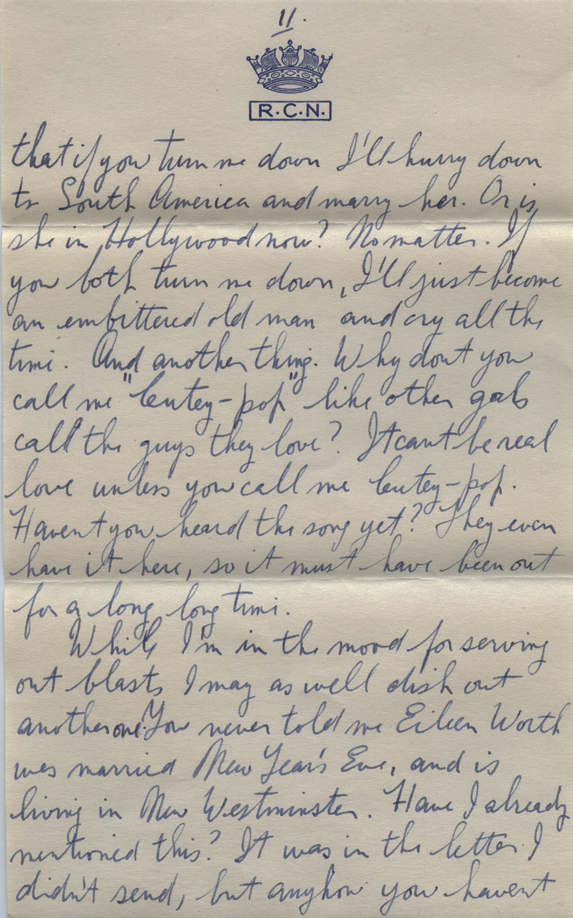 11.
R.C.N.
that if you turn me down I'll hurry down
to South America and marry her. Or is
she in Hollywood now? No matter. If
you both turn me down, I'll just become
an embittered old man and cry all the
time. And another thing. Why don't you
call me "Cutey-pop" like other gals
call the guys they love? It can't be real
love unless you call me Cutey-pop.
Haven't you heard the song yet? They even
have it here, so it must have been out
for a long long time.
While I'm in the mood for serving
out blasts I may as well dish out
another one. You never told me Eileen Worth
was married New Year's Eve, and is
living in New Westminster. Have I already
mentioned this? It was in the letter I
didn't send, but anyhow you haven't